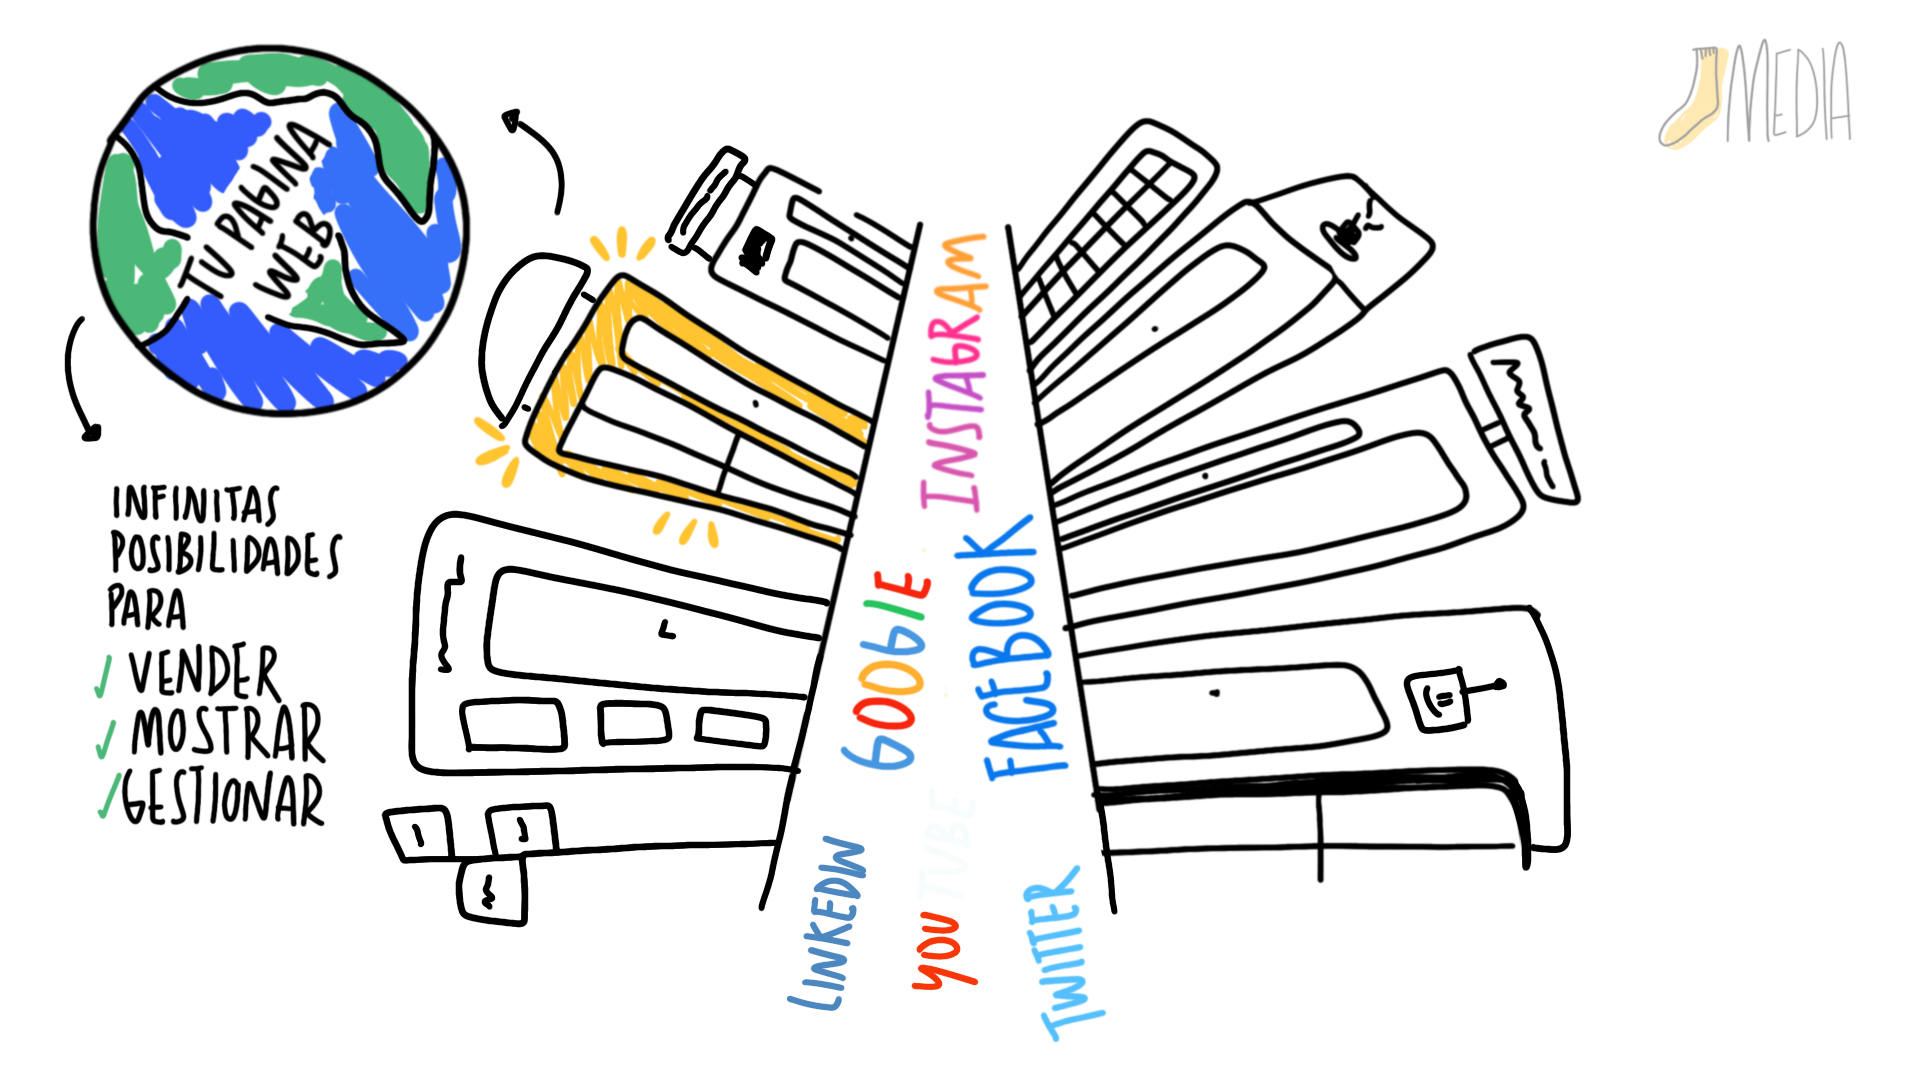 TU PAGINA
WEB
INFINITAS
POSIBILIDADES
PARA
VENDER
MOSTRAR
GESTIONAR
INSTAGRAM
GOOGLE
FACEBOOK
LINKEDIN
YOU TUBE
TWITTER
MEDIA